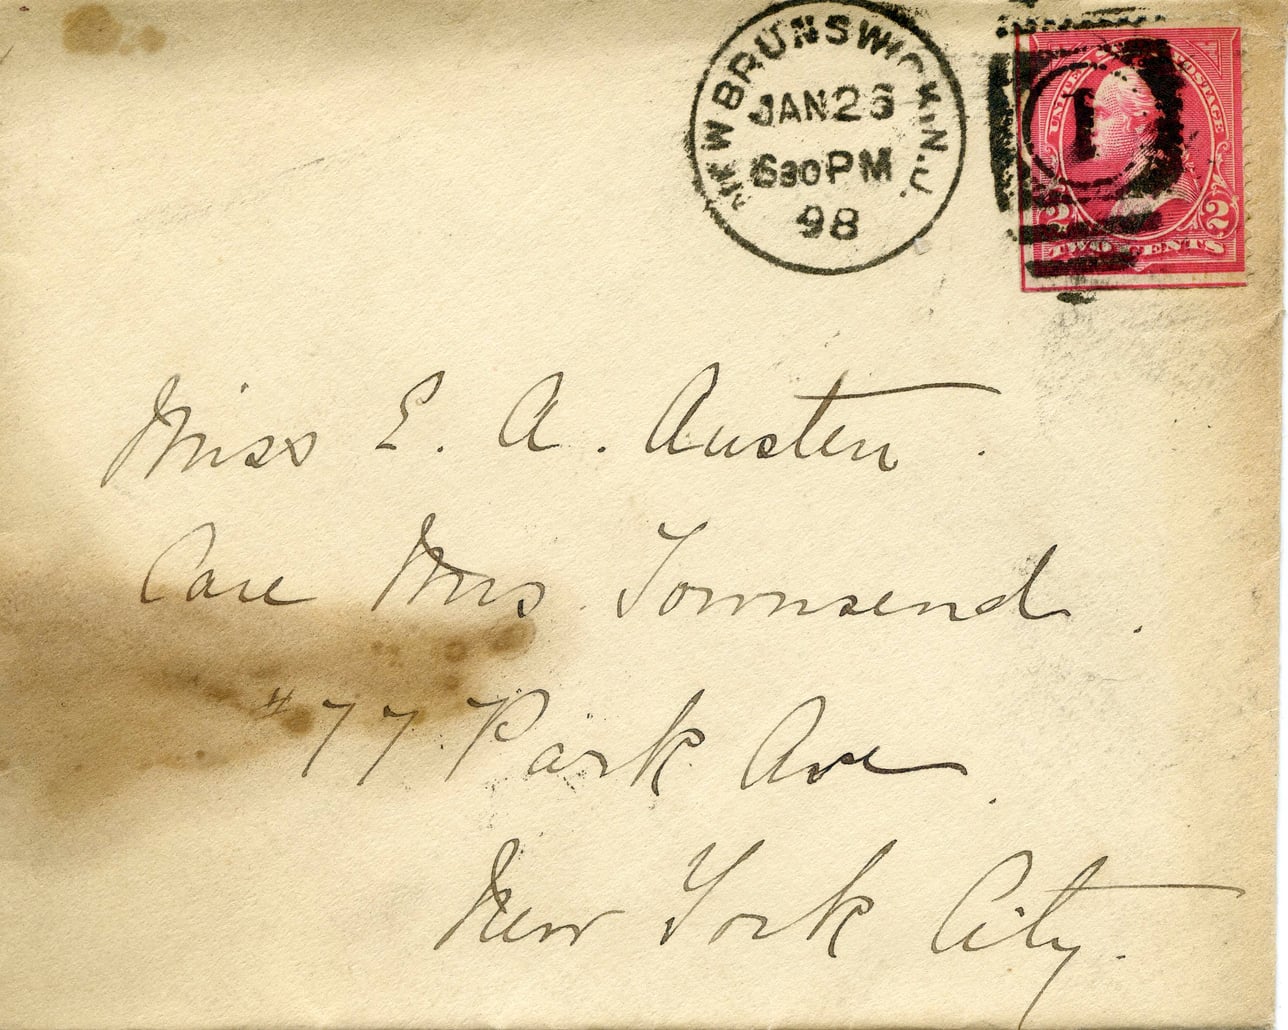 NEW BRUNSWICK, N.J.
JAN 26
630 PM
98
1
UNITED STATES POSTAGE
2 2
TWO CENTS
Miss E. A. Austen.
Care Mrs. Townsend.
#77 Park Ave.
New York City.